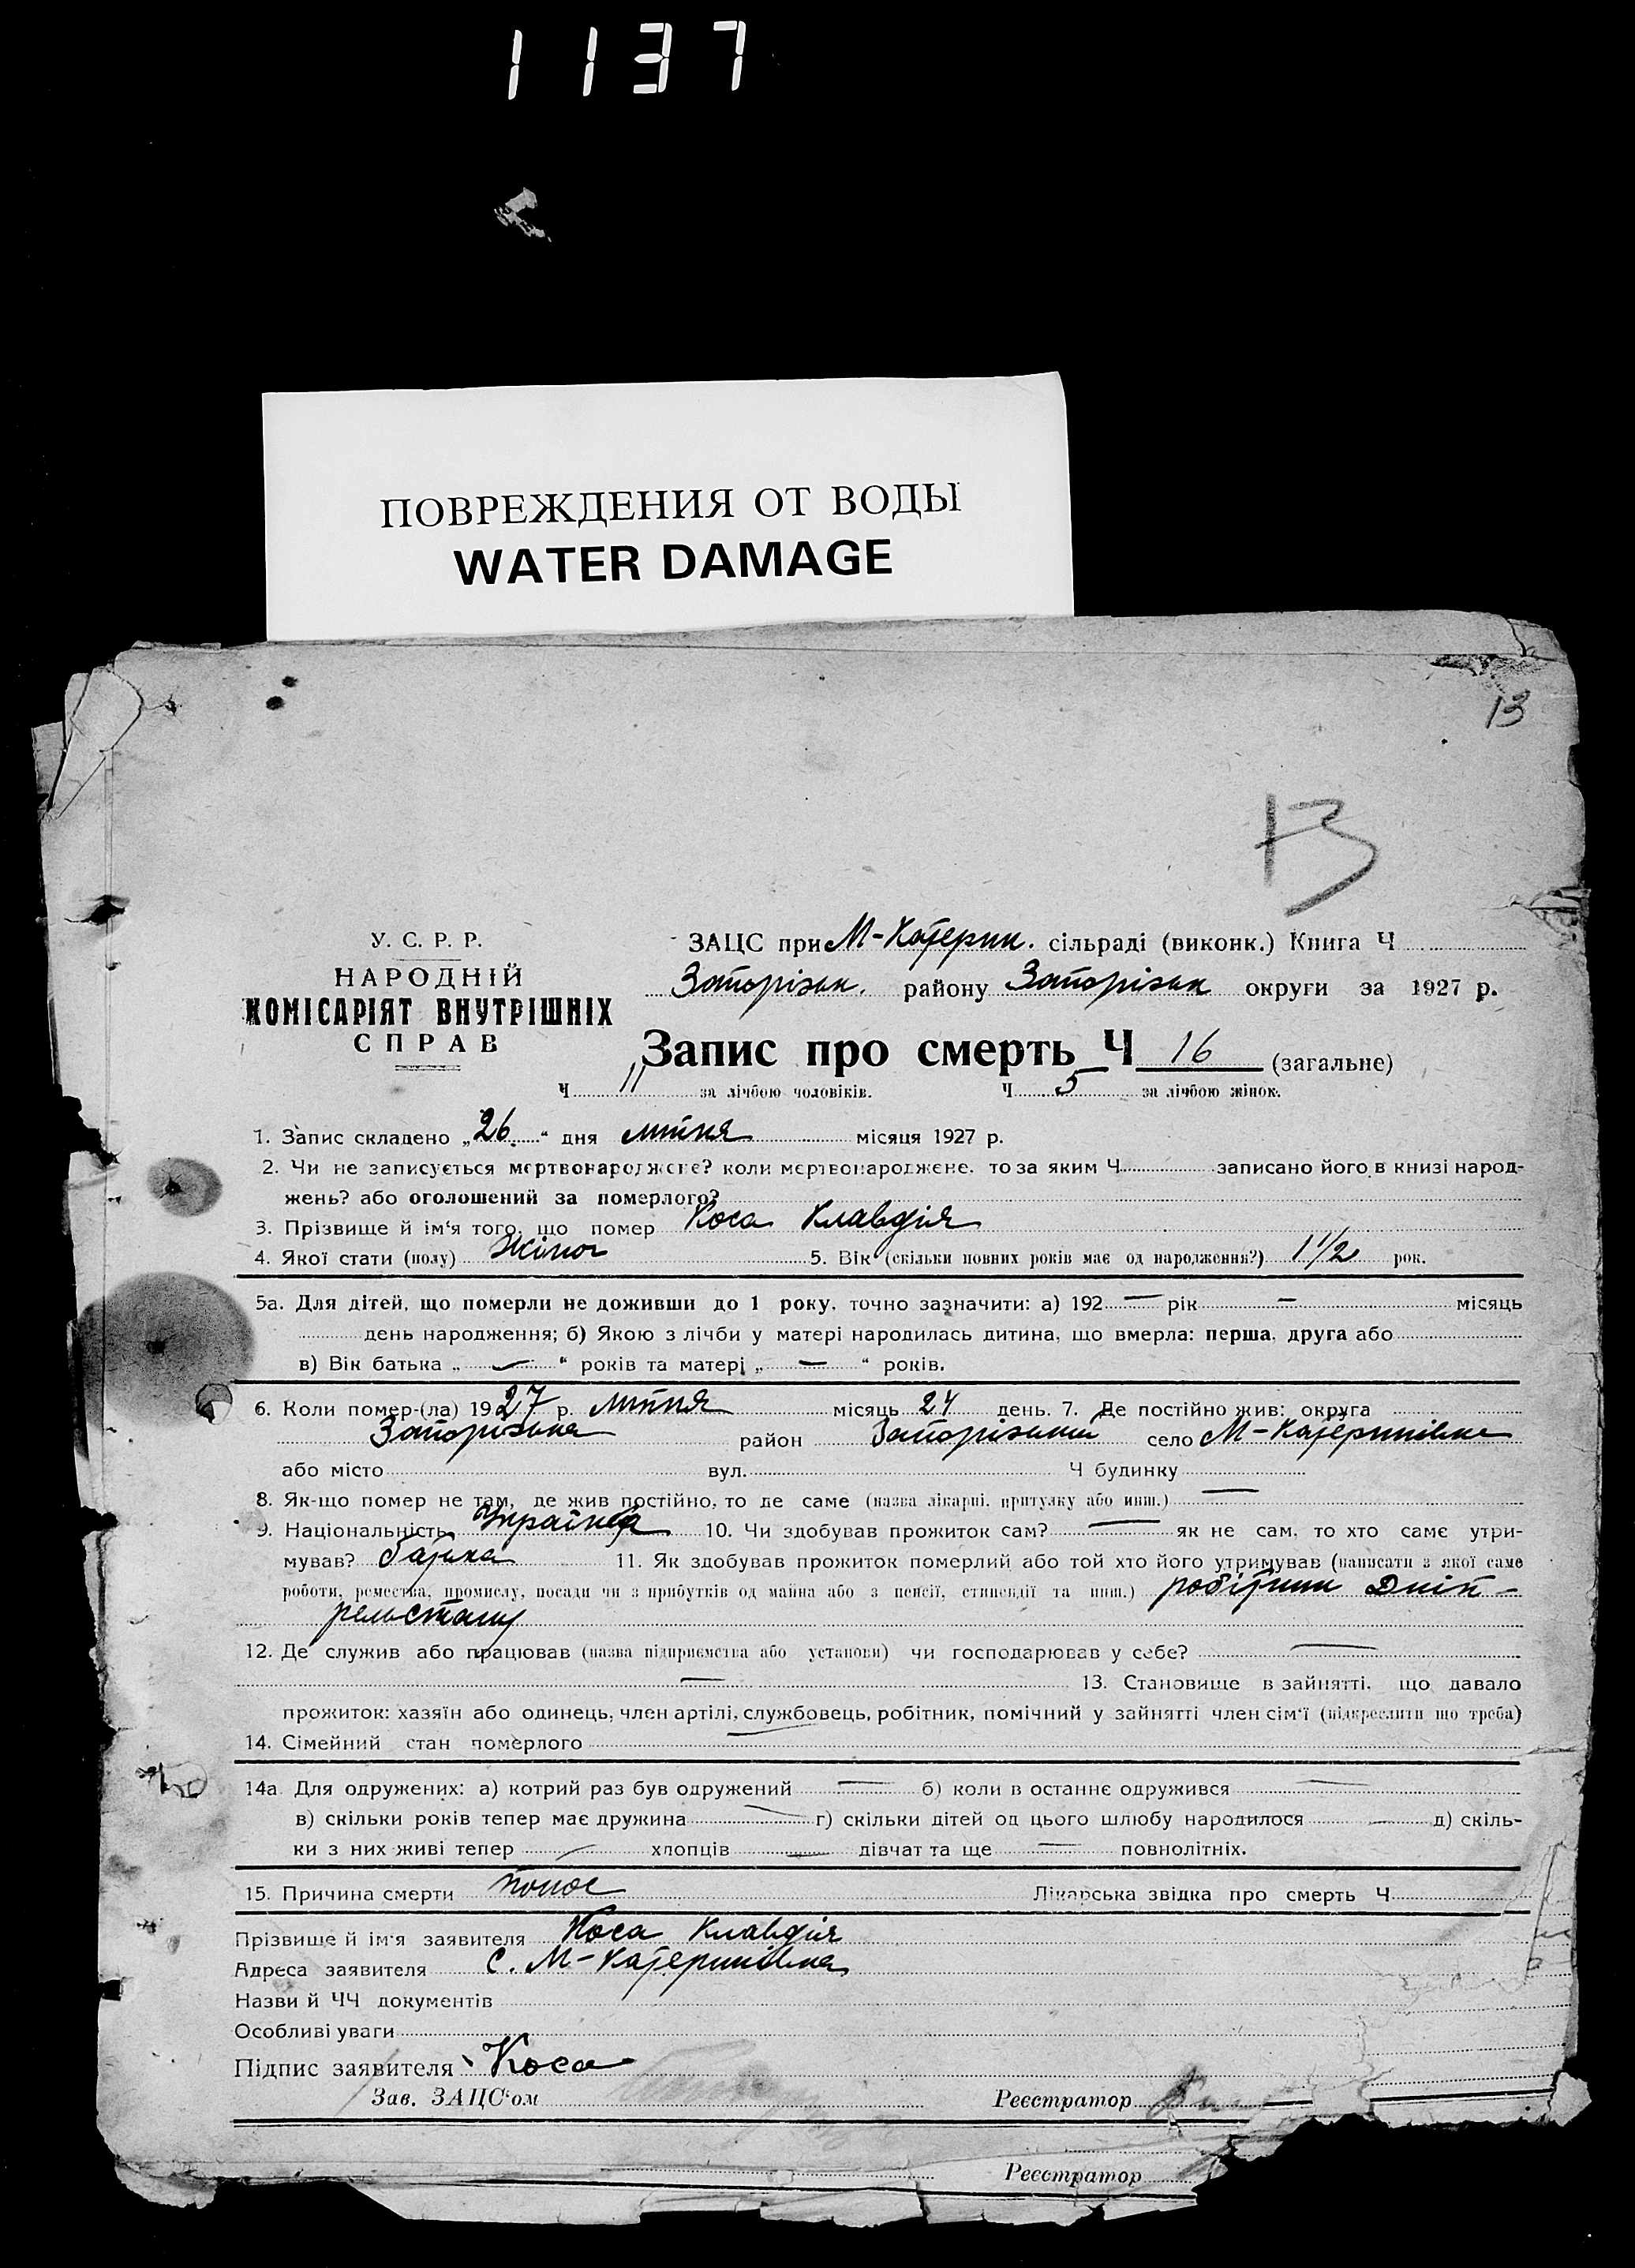 1137
ПОВРЕЖДЕНИЯ ОТ ВОДЫ
WATER DAMAGE
13
13
У. С. Р. Р.
НАРОДНІЙ
КОМІСАРІЯТ ВНУТРІШНІХ
СПРАВ
ЗАЦС при М-Катерин. сільраді (виконк.) Книга Ч
Запорізьк. району Запорізьк округи за 1927 р.
Запис про смерть Ч 16 (загальне)
Ч 11 за лічбою чоловіків. Ч 5 за лічбою жінок.
1. Запис складено „26." дня липня місяця 1927 р.
2. Чи не записується мертвонароджене? коли мертвонароджене, то за яким Ч записано його в книзі народ-
жень? або оголошений за померлого?
3. Прізвище й ім'я того, що помер Коса Клавдія
4. Якої стати (полу) Жіноч 5. Вік (скільки повних років має од народження?) 1 1/2 рок.
5а. Для дітей, що померли не доживши до 1 року, точно зазначити: а) 192 — рік — місяць
день народження; б) Якою з лічби у матері народилась дитина, що вмерла: перша, друга або
в) Вік батька „ — " років та матері „ — " років.
6. Коли помер-(ла) 1927 р. липня місяць 24 день. 7. Де постійно жив: округа
Запорізька район Запорізький село М-Катеринівка
або місто вул. Ч будинку
8. Як-що помер не там, де жив постійно, то де саме (назва лікарні, притулку або инш.) —
9. Національність Українка 10. Чи здобував прожиток сам? — як не сам, то хто саме утри-
мував? батька 11. Як здобував прожиток померлий або той хто його утримував (написати з якої саме
роботи, ремества, промислу, посади чи з прибутків од майна або з пенсії, стипендії та инш.) робітник Дніп-
рельстану
12. Де служив або працював (назва підприємства або установи) чи господарював у себе? —
— 13. Становище в зайнятті, що давало
прожиток: хазяїн або одинець, член артілі, службовець, робітник, помічний у зайнятті член сім'ї (підкреслити що треба)
14. Сімейний стан померлого
14а. Для одружених: а) котрий раз був одружений — б) коли в останнє одружився —
в) скільки років тепер має дружина — г) скільки дітей од цього шлюбу народилося — д) скіль-
ки з них живі тепер — хлопців — дівчат та ще — повнолітніх.
15. Причина смерти понос Лікарська звідка про смерть Ч
Прізвище й ім'я заявителя Коса Клавдія
Адреса заявителя с. М-Катеринівка
Назви й ЧЧ документів
Особливі уваги
Підпис заявителя Коса
Зав. ЗАЦС'ом Реєстратор
Реєстратор